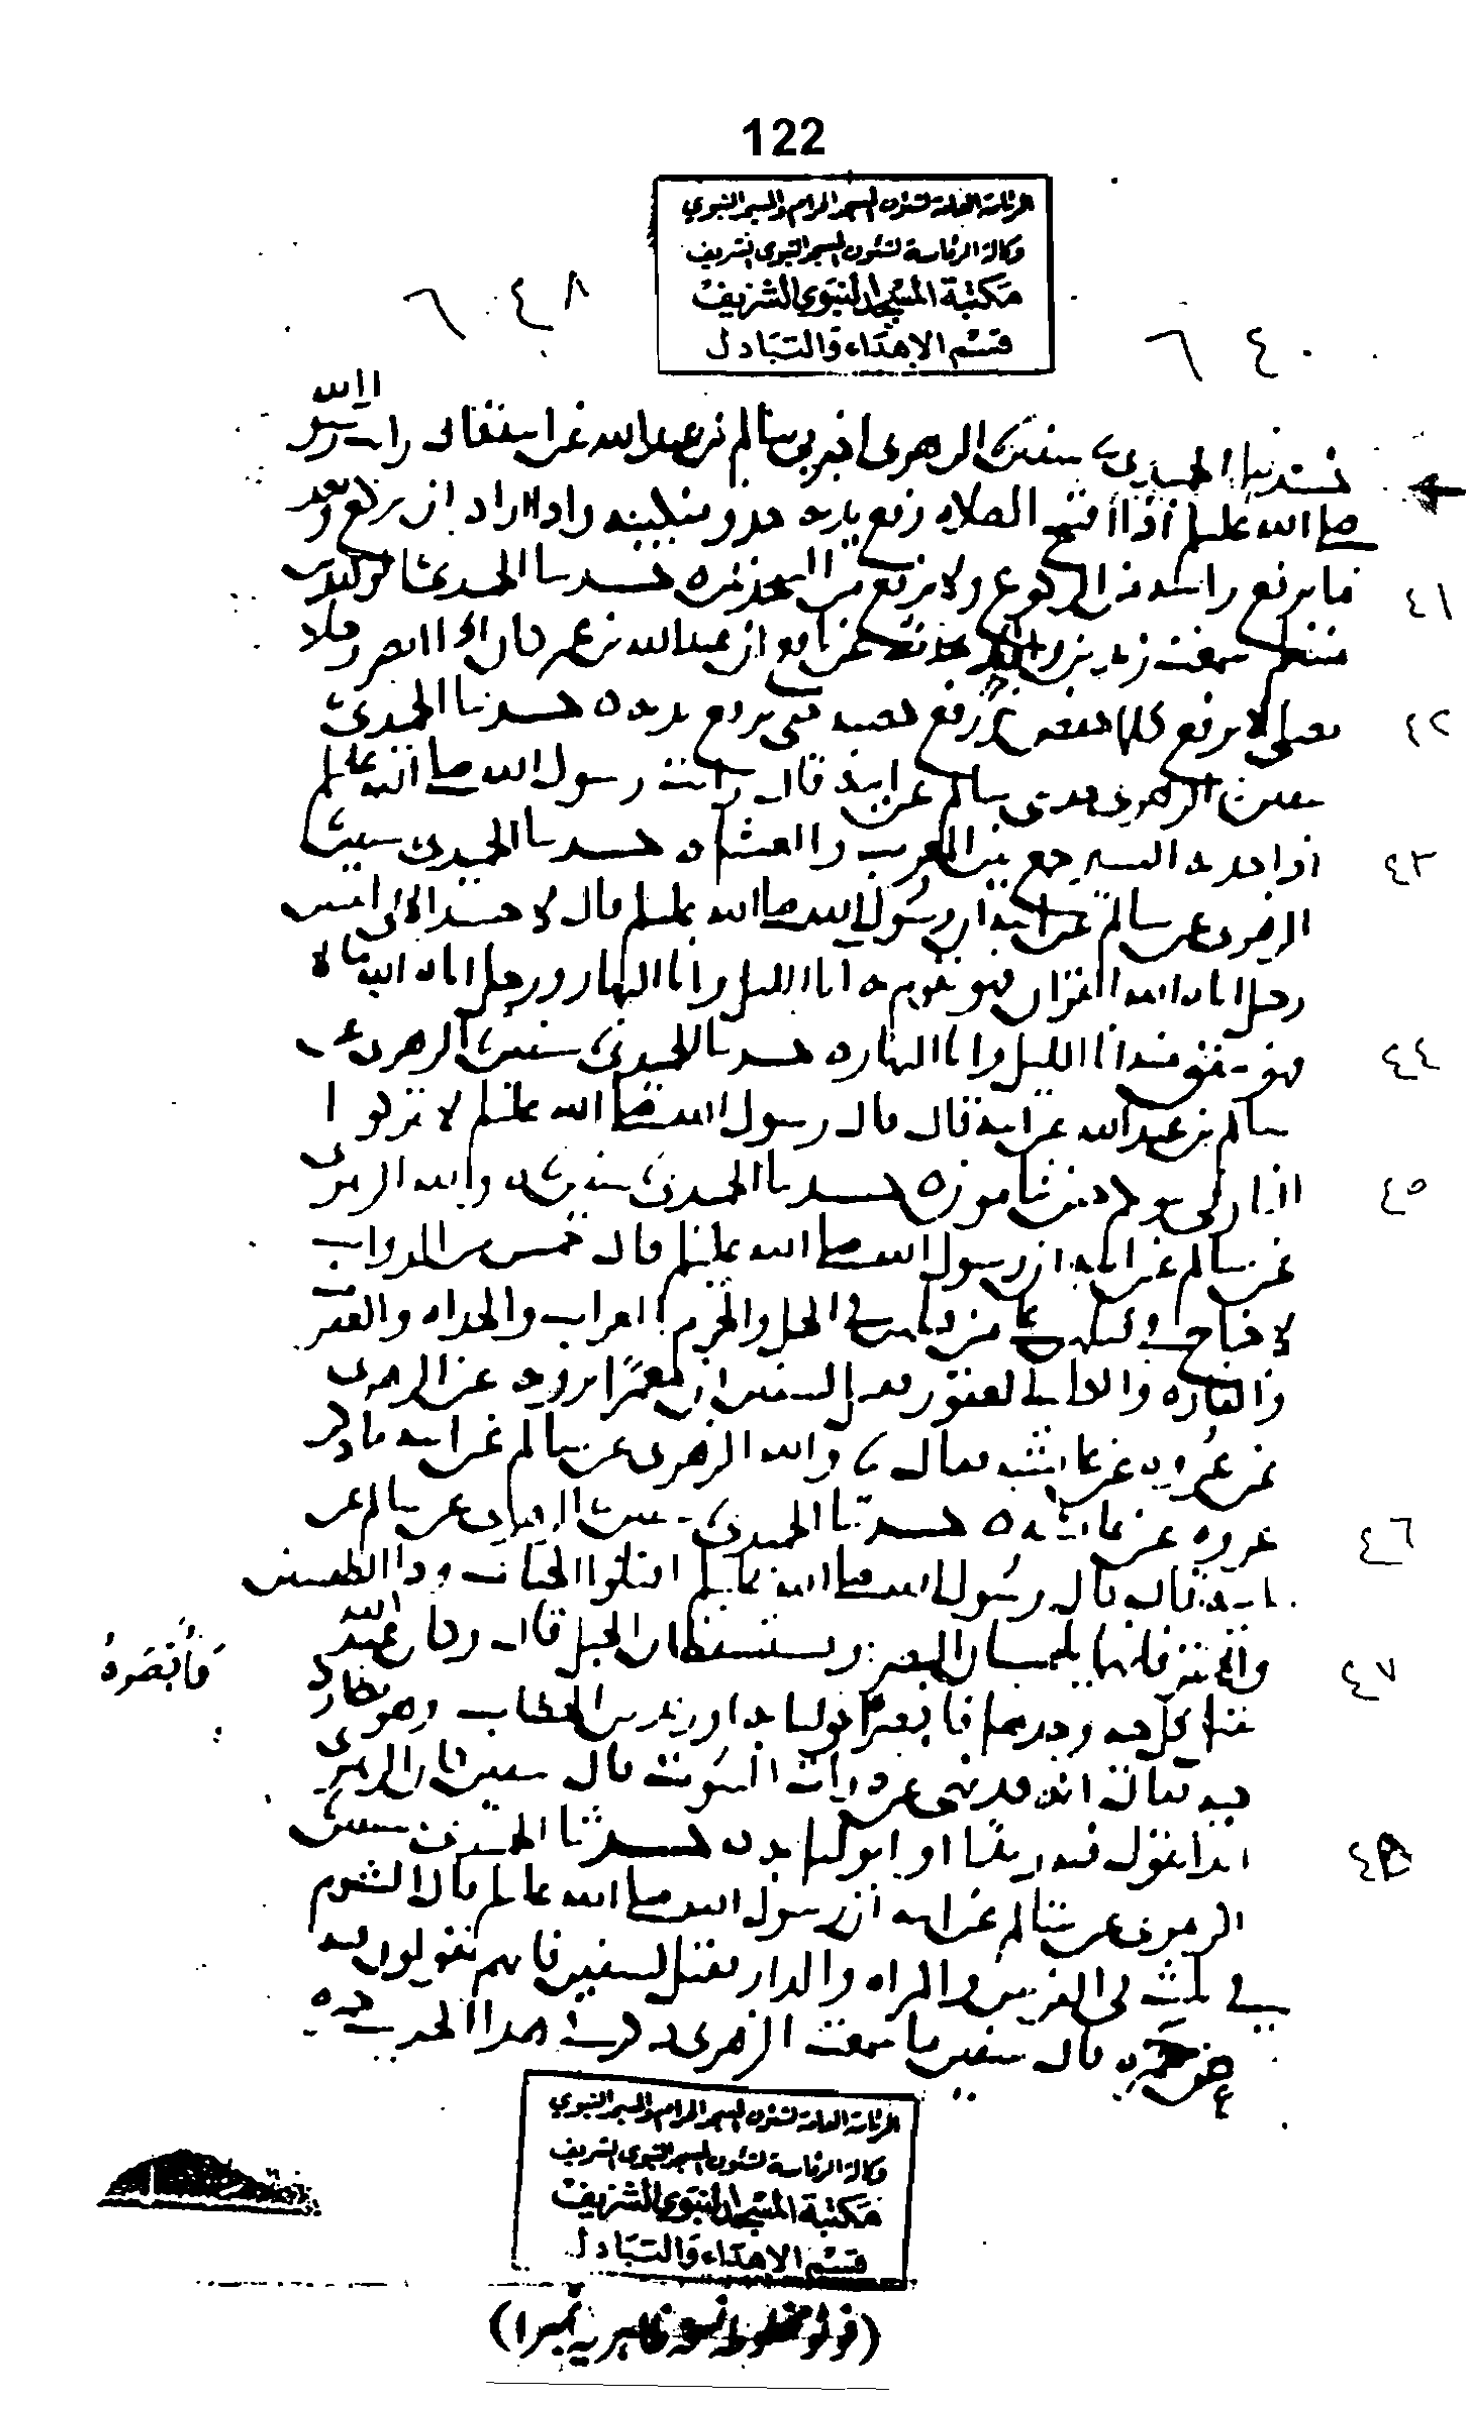 122
الرئاسة العامة لشئون المسجد الحرام والمسجد النبوي
وكالة الرئاسة لشئون المسجد النبوي الشريف
مكتبة المسجد النبوي الشريف
قسم الإهداء والتبادل
٦٤٨
٦٤٠
الله
حدثنا الحميدي ثنا سفين ثنا الزهري اخبرني سالم بن عبد الله عن ابيه قال رايت رسول
صلى الله عليه وسلم اذا افتتح الصلاه رفع يديه حذو منكبيه واذا اراد ان يركع وبعد
٤١
ما يرفع راسه من الركوع ولا يرفع بين السجدتين ٥ حدثنا الحميدي ثنا الوليد بن
مسلم سمعت زيد بن واقد يحدث عن نافع ان عبد الله بن عمر كان اذا ابصر رجلا
٤٢
يصلي لا يرفع كلما خفض ورفع حصبه حتى يرفع يديه ٥ حدثنا الحميدي
سفين ثنا الزهري حدثني سالم عن ابيه قال رايت رسول الله صلى الله عليه وسلم
٤٣
اذا جد به السير جمع بين المغرب والعشاء ٥ حدثنا الحميدي سفين ثنا
الزهري عن سالم عن ابيه ان رسول الله صلى الله عليه وسلم قال لا حسد الا في اثنتين
رجل اتاه الله القران فهو يقوم به انا الليل وانا النهار ورجل اتاه الله مالا
٤٤
فهو ينفق منه انا الليل وانا النهار ٥ حدثنا الحميدي ثنا سفين ثنا الزهري عن
سالم بن عبد الله عن ابيه قال قال رسول الله صلى الله عليه وسلم لا تتركوا
٤٥
النار في بيوتكم حين تنامون ٥ حدثنا الحميدي ثنا سفين ثنا والله الزهري
عن سالم عن ابيه ان رسول الله صلى الله عليه وسلم قال خمس من الدواب
لا جناح في قتلهن على من قتلهن في الحل والحرم الغراب والحداه والعقرب
والفاره والكلب العقور فقيل لسفين ان معمرا يرويه عن الزهري
عن عروه عن عائشه فقال ثنا والله الزهري عن سالم عن ابيه ما ذكر
٤٦
عروه عن عائشه ٥ حدثنا الحميدي ثنا سفين ثنا الزهري عن سالم عن
ابيه قال قال رسول الله صلى الله عليه وسلم اقتلوا الحيات وذا الطفيتين
٤٧
والابتر فانهما يلتمسان البصر ويستسقطان الحبل قال وكان عبد الله
فابصره
يقتل كل حيه وجدها فابصره ابو لبابه او زيد بن الخطاب وهو يطارد
حيه فقال انه قد نهي عن ذوات البيوت قال سفين كان الزهري
٤٩
ابدا يقول فيه زيد او ابو لبابه ٥ حدثنا الحميدي ثنا سفين ثنا
الزهري عن سالم عن ابيه ان رسول الله صلى الله عليه وسلم قال الشوم
في ثلث في الفرس والمراه والدار فقيل لسفين فانهم يقولون فيه
عن حمزه قال سفين ما سمعت الزهري ذكر في هذا الحديث حمزه
الرئاسة العامة لشئون المسجد الحرام والمسجد النبوي
وكالة الرئاسة لشئون المسجد النبوي الشريف
مكتبة المسجد النبوي الشريف
قسم الإهداء والتبادل
(فوتو مخطوطه نسخه ظاهريه نمبر١)